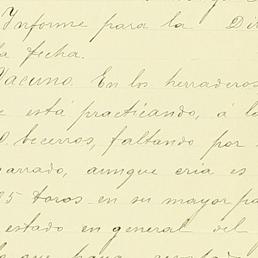 Informe para la Di
la fecha.
Vacuno. En los herraderos
e está practicando, á la
becerros, faltando por
arrado, aunque cria es
5 toros en su mayor pa
estado en general del
que haya